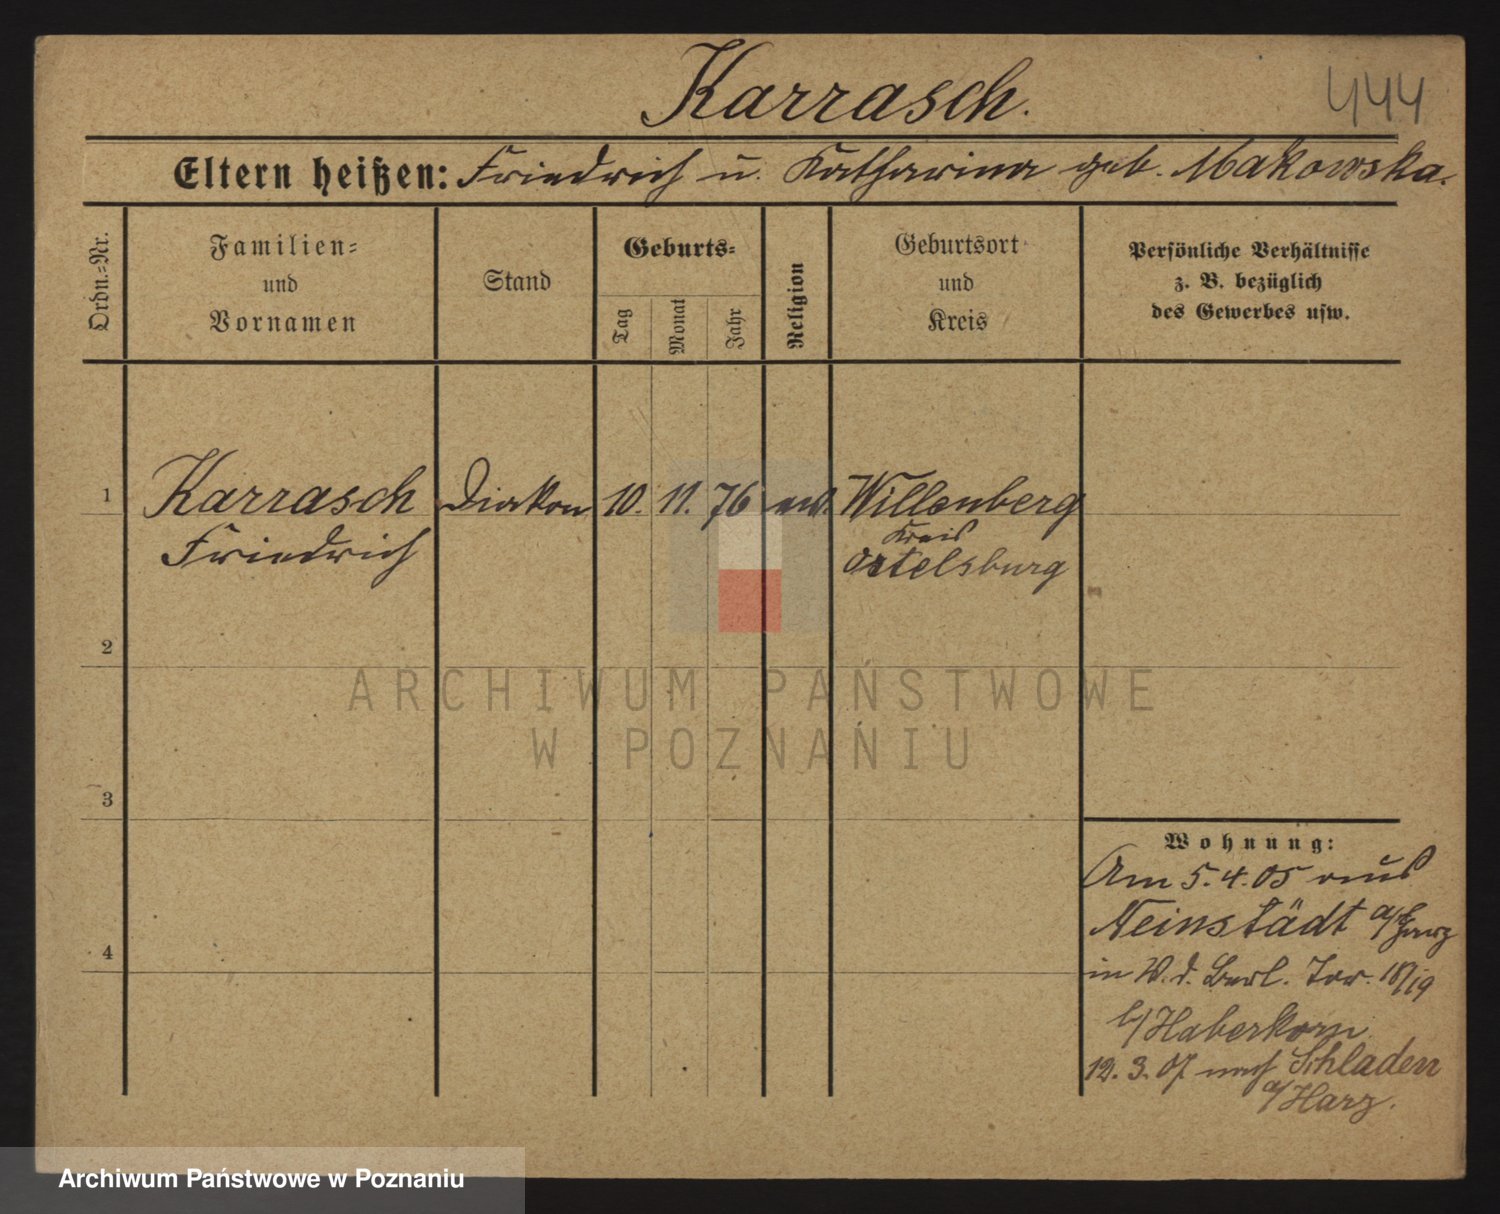 Karrasch.
444
Eltern heißen: Friedrich u. Katharina geb. Makowska.
Ordn.-Nr.
Familien-
und
Vornamen
Stand
Geburts-
Tag
Monat
Jahr
Religion
Geburtsort
und
Kreis
Persönliche Verhältnisse
z. B. bezüglich
des Gewerbes usw.
1
Karrasch
Friedrich
Diakon
10.
11.
76
ev.
Willenberg
Kreis
Ortelsburg
2
3
4
Wohnung:
Am 5.4.05 aus
Neinstädt a/Harz
in W. d. Berl. Tor. 18/19
b/Haberkorn
12.3.07 nach Schladen
a/Harz.
ARCHIWUM PAŃSTWOWE
W POZNANIU
Archiwum Państwowe w Poznaniu